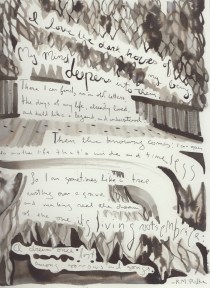 I love the dark hours of
my being
My mind deepens into them
There I can find, as in old letters,
the days of my life, already lived,
and held like a legend, and understood.
Then the knowing comes: I can open
to another life that's wide and timeless
So I am sometimes like a tree
rustling over a grave
and making real the dream
of the one its living roots embrace
a dream once lost
among sorrows and songs.
R.M. Rilke